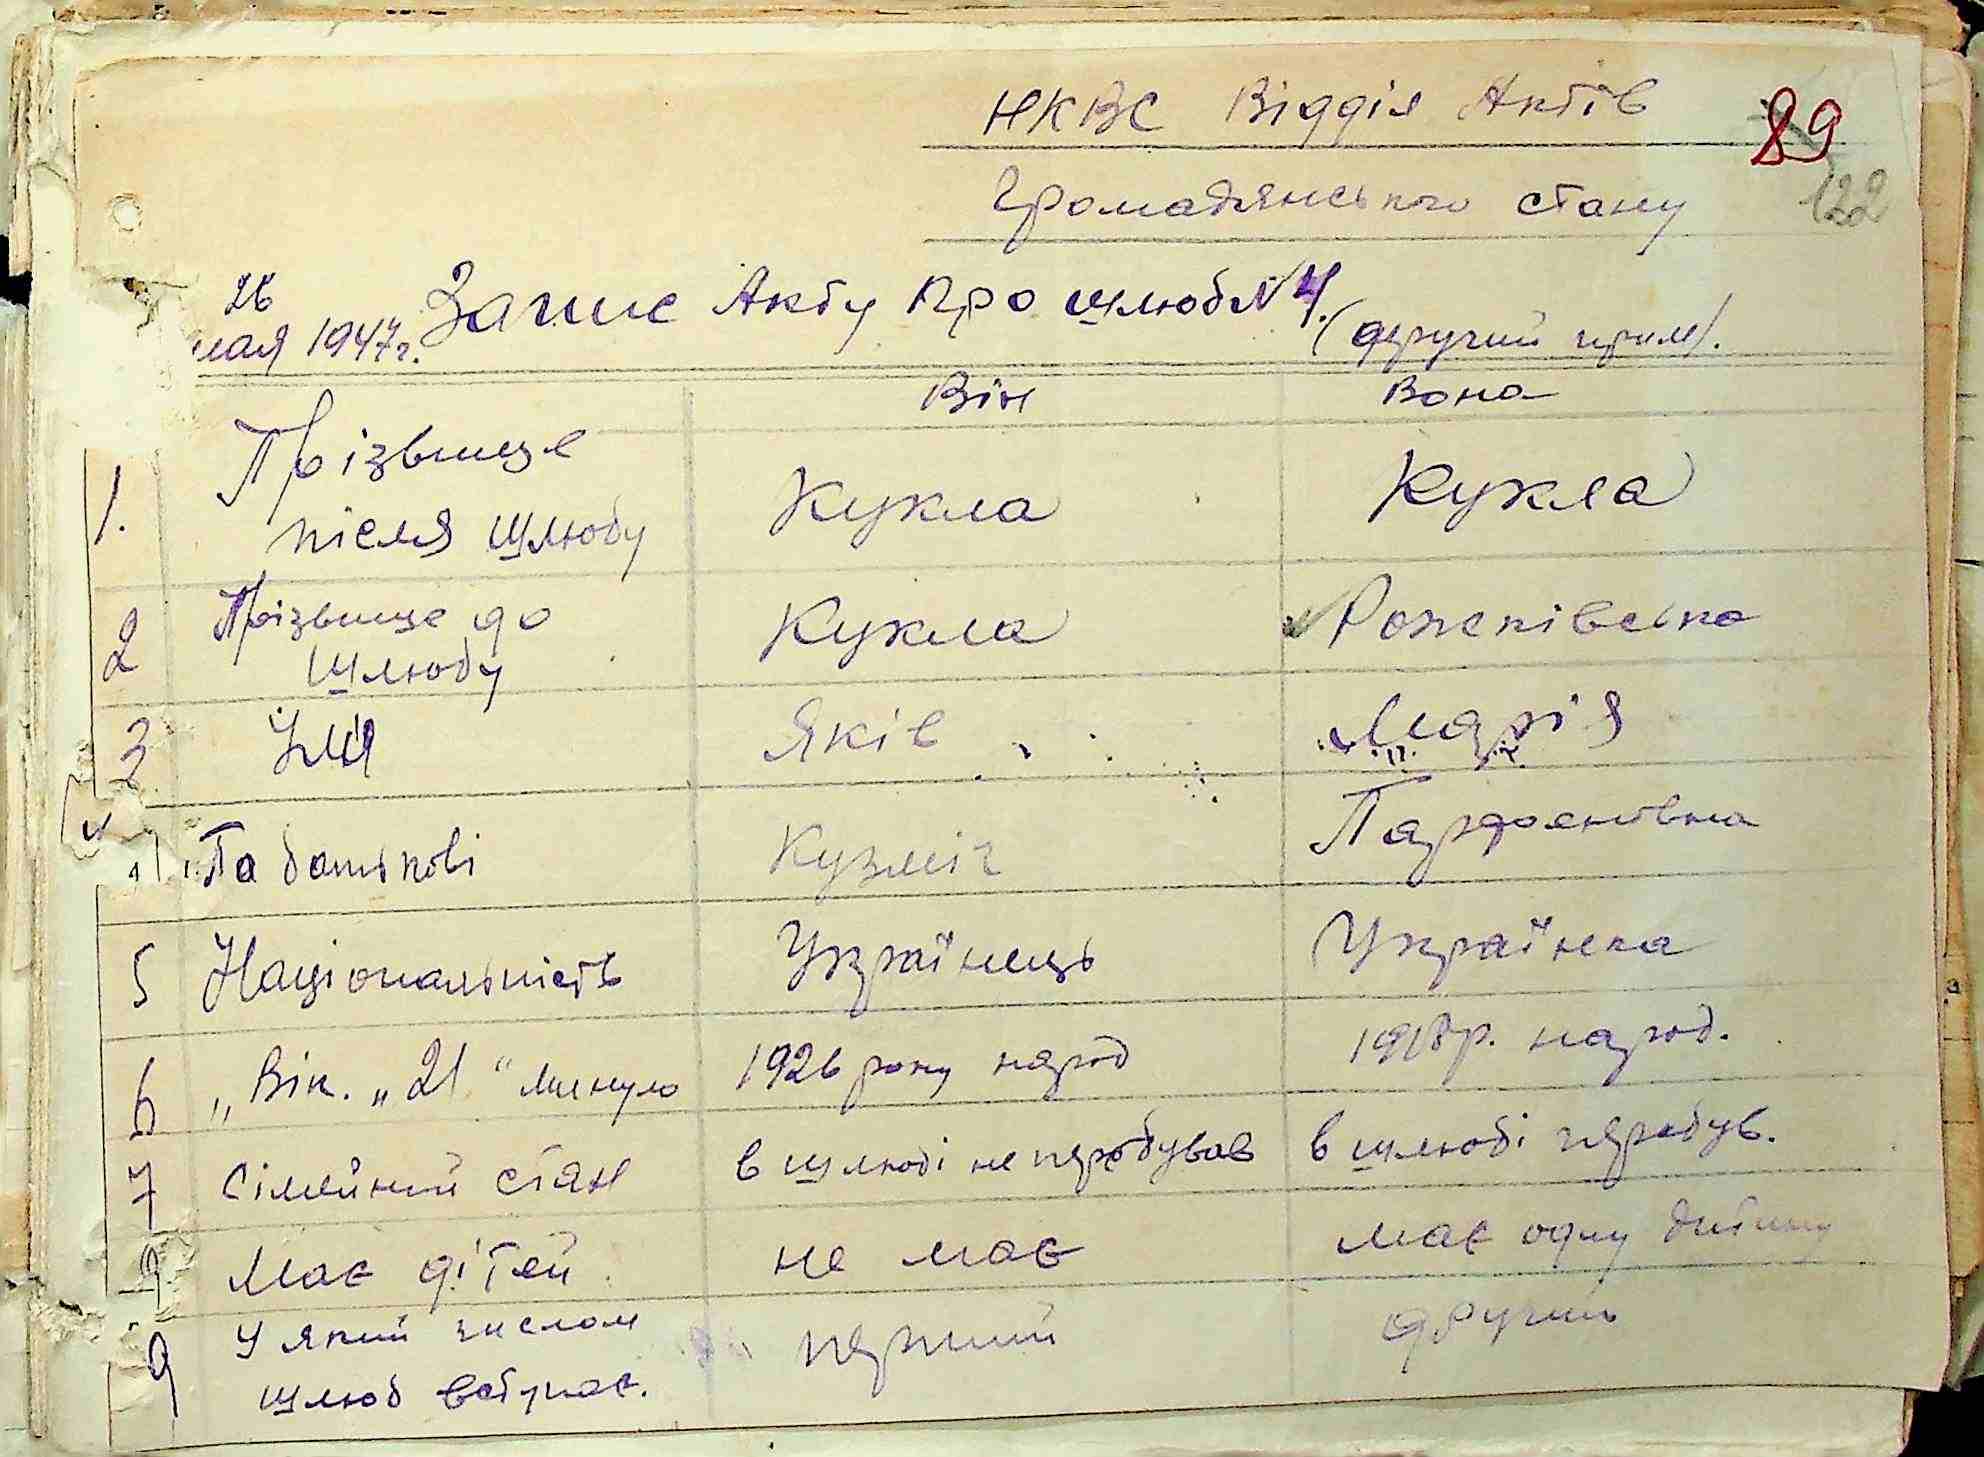 НКВС Відділ Актів
89
Громадянського стану
122
26
мая 1947г. Запис Акту про шлюб №4.
(другий прим).
Він Вона
1. Прізвище
після шлюбу Кукла Кукла
2 Прізвище до
шлюбу Кукла
3 Імя Яків Марія
4 По батькові Кузміч Парфентівна
5 Національність Українець Українка
6 „Вік. „21“ минуло 1926 року народ 1918р. народ.
7 Сімейний стан в шлюбі не перебував в шлюбі перебув.
8 Має дітей не має має одну дитину
9 У який числом
шлюб вступає. перший другий